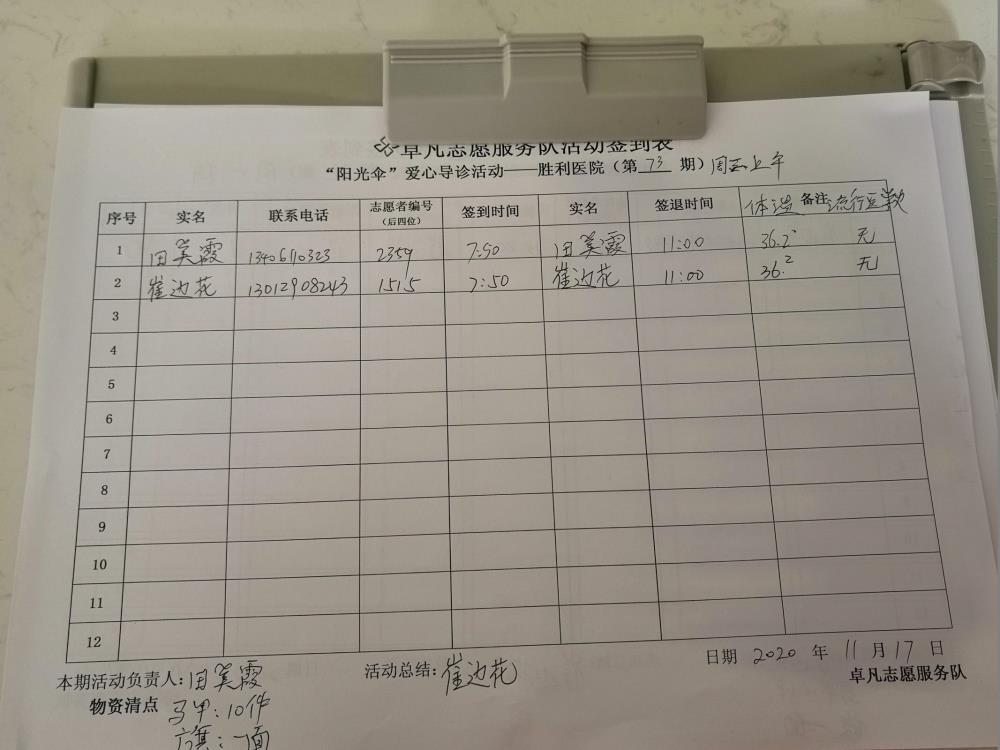 卓凡志愿服务队活动签到表
“阳光伞”爱心导诊活动——胜利医院（第 73 期）周三上午
序号 实名 联系电话 志愿者编号（后四位） 签到时间 实名 签退时间 体温 备注 流行症数
1 田美霞 2359 7:50 田美霞 11:00 36.2° 无
2 崔边花 13012908243 1515 7:50 崔边花 11:00 36.2 无
3
4
5
6
7
8
9
10
11
12
日期 2020 年 11 月 17 日
本期活动负责人：田美霞 活动总结：崔边花
卓凡志愿服务队
物资清点 马甲：10件
旗：一面